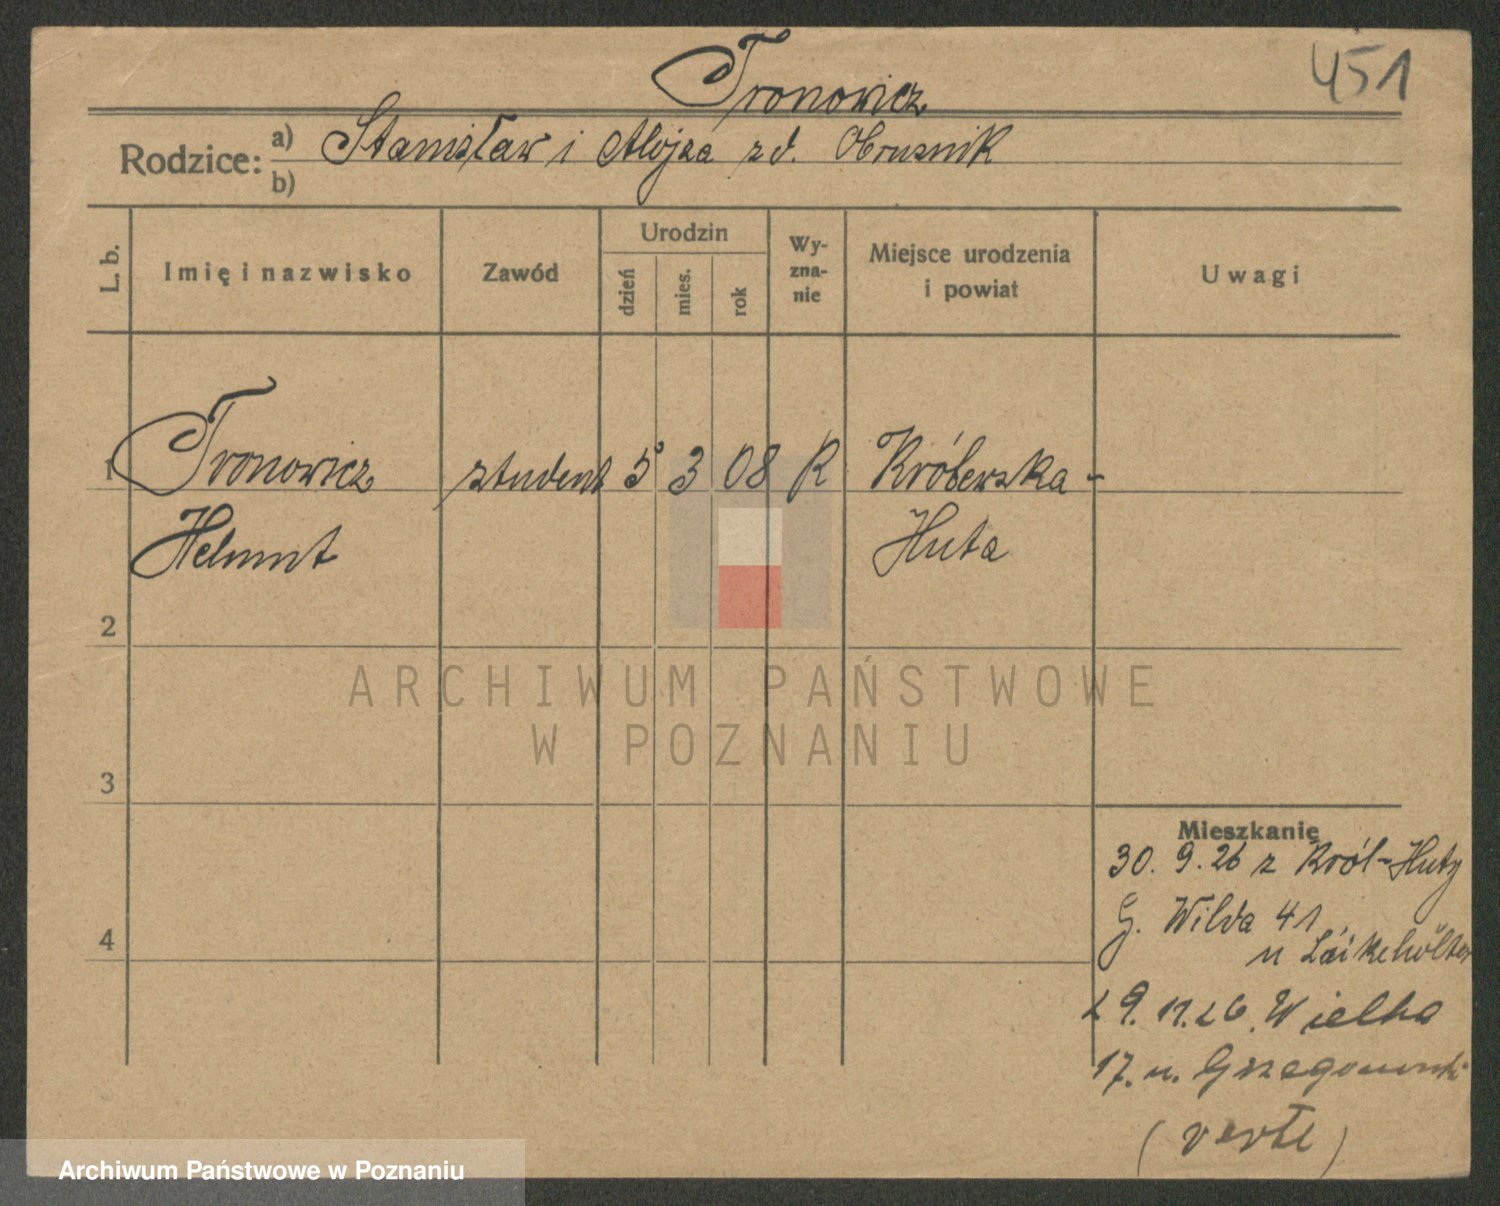 451
Tronowicz
Rodzice: a) Stanisław i Alojza zd. Obrusnik
b)
L. b.
Imię i nazwisko
Zawód
Urodzin
dzień
mies.
rok
Wy-
zna-
nie
Miejsce urodzenia
i powiat
Uwagi
1 Tronowicz student 5 3 08 R Królewska-
Helmut Huta
2
3
4
Mieszkanie
30. 9. 26 z Król-Huty
G. Wilda 41
u
29. 11. 26. Wielka
17. u.
(verte)
ARCHIWUM PAŃSTWOWE
W POZNANIU
Archiwum Państwowe w Poznaniu